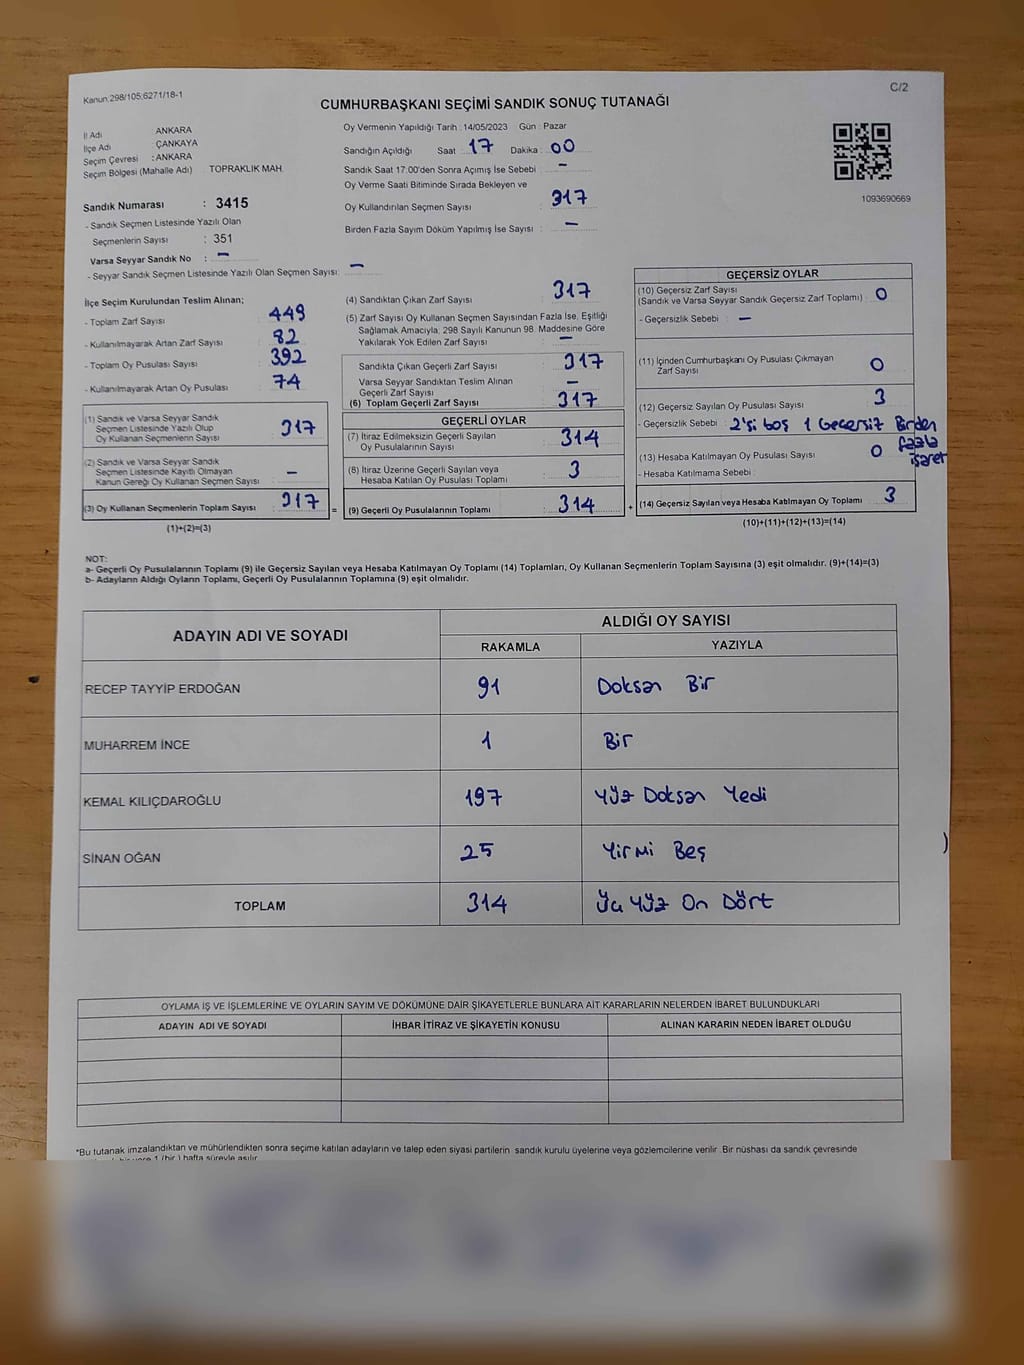 Kanun:298/105;6271/18-1
C/2
CUMHURBAŞKANI SEÇİMİ SANDIK SONUÇ TUTANAĞI
İl Adı ANKARA
İlçe Adı ÇANKAYA
Seçim Çevresi : ANKARA
Seçim Bölgesi (Mahalle Adı) TOPRAKLIK MAH.
Sandık Numarası : 3415
- Sandık Seçmen Listesinde Yazılı Olan
Seçmenlerin Sayısı : 351
Varsa Seyyar Sandık No : -
- Seyyar Sandık Seçmen Listesinde Yazılı Olan Seçmen Sayısı: -
Oy Vermenin Yapıldığı Tarih : 14/05/2023 Gün : Pazar
Sandığın Açıldığı Saat : 17 Dakika : 00
Sandık Saat 17:00'den Sonra Açımış İse Sebebi : -
Oy Verme Saati Bitiminde Sırada Bekleyen ve
Oy Kullandırılan Seçmen Sayısı : 317
Birden Fazla Sayım Döküm Yapılmış İse Sayısı : -
1093690669
İlçe Seçim Kurulundan Teslim Alınan;
- Toplam Zarf Sayısı : 449
- Kullanılmayarak Artan Zarf Sayısı : 82
- Toplam Oy Pusulası Sayısı : 392
- Kullanılmayarak Artan Oy Pusulası : 74
(1) Sandık ve Varsa Seyyar Sandık
Seçmen Listesinde Yazılı Olup
Oy Kullanan Seçmenlerin Sayısı : 317
(2) Sandık ve Varsa Seyyar Sandık
Seçmen Listesinde Kayıtlı Olmayan
Kanun Gereği Oy Kullanan Seçmen Sayısı : -
(3) Oy Kullanan Seçmenlerin Toplam Sayısı : 317
(1)+(2)=(3)
(4) Sandıktan Çıkan Zarf Sayısı : 317
(5) Zarf Sayısı Oy Kullanan Seçmen Sayısından Fazla İse, Eşitliği
Sağlamak Amacıyla, 298 Sayılı Kanunun 98. Maddesine Göre
Yakılarak Yok Edilen Zarf Sayısı : -
Sandıkta Çıkan Geçerli Zarf Sayısı : 317
Varsa Seyyar Sandıktan Teslim Alınan
Geçerli Zarf Sayısı : -
(6) Toplam Geçerli Zarf Sayısı : 317
GEÇERLİ OYLAR
(7) İtiraz Edilmeksizin Geçerli Sayılan
Oy Pusulalarının Sayısı : 314
(8) İtiraz Üzerine Geçerli Sayılan veya
Hesaba Katılan Oy Pusulası Toplamı : 3
= (9) Geçerli Oy Pusulalarının Toplamı : 314
GEÇERSİZ OYLAR
(10) Geçersiz Zarf Sayısı
(Sandık ve Varsa Seyyar Sandık Geçersiz Zarf Toplamı) : 0
- Geçersizlik Sebebi : -
(11) İçinden Cumhurbaşkanı Oy Pusulası Çıkmayan
Zarf Sayısı : 0
(12) Geçersiz Sayılan Oy Pusulası Sayısı : 3
- Geçersizlik Sebebi : 2'si boş 1 Geçersiz Birden
fazla
işaret
(13) Hesaba Katılmayan Oy Pusulası Sayısı : 0
- Hesaba Katılmama Sebebi :
+ (14) Geçersiz Sayılan veya Hesaba Katılmayan Oy Toplamı : 3
(10)+(11)+(12)+(13)=(14)
NOT:
a- Geçerli Oy Pusulalarının Toplamı (9) ile Geçersiz Sayılan veya Hesaba Katılmayan Oy Toplamı (14) Toplamları, Oy Kullanan Seçmenlerin Toplam Sayısına (3) eşit olmalıdır. (9)+(14)=(3)
b- Adayların Aldığı Oyların Toplamı, Geçerli Oy Pusulalarının Toplamına (9) eşit olmalıdır.
ADAYIN ADI VE SOYADI ALDIĞI OY SAYISI
RAKAMLA YAZIYLA
RECEP TAYYİP ERDOĞAN 91 Doksan Bir
MUHARREM İNCE 1 Bir
KEMAL KILIÇDAROĞLU 197 Yüz Doksan Yedi
SİNAN OĞAN 25 Yirmi Beş
TOPLAM 314 Üç Yüz On Dört
OYLAMA İŞ VE İŞLEMLERİNE VE OYLARIN SAYIM VE DÖKÜMÜNE DAİR ŞİKAYETLERLE BUNLARA AİT KARARLARIN NELERDEN İBARET BULUNDUKLARI
ADAYIN ADI VE SOYADI İHBAR İTİRAZ VE ŞİKAYETİN KONUSU ALINAN KARARIN NEDEN İBARET OLDUĞU
*Bu tutanak imzalandıktan ve mühürlendikten sonra seçime katılan adayların ve talep eden siyasi partilerin sandık kurulu üyelerine veya gözlemcilerine verilir .Bir nüshası da sandık çevresinde
1 (bir ) hafta süreyle asılır.